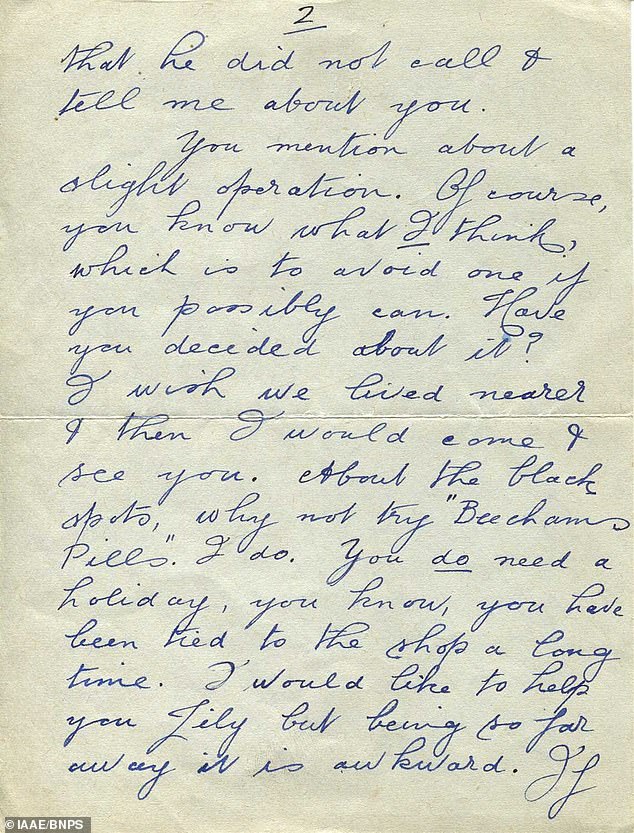 2
that he did not call &
tell me about you.
You mention about a
slight operation. Of course,
you know what I think,
which is to avoid one if
you possibly can. Have
you decided about it?
I wish we lived nearer
& then I would come &
see you. About the black
spots, why not try "Beechams
Pills". I do. You do need a
holiday, you know, you have
been tied to the shop a long
time. I would like to help
you Lily but being so far
away it is awkward. If
© IAAE/BNPS